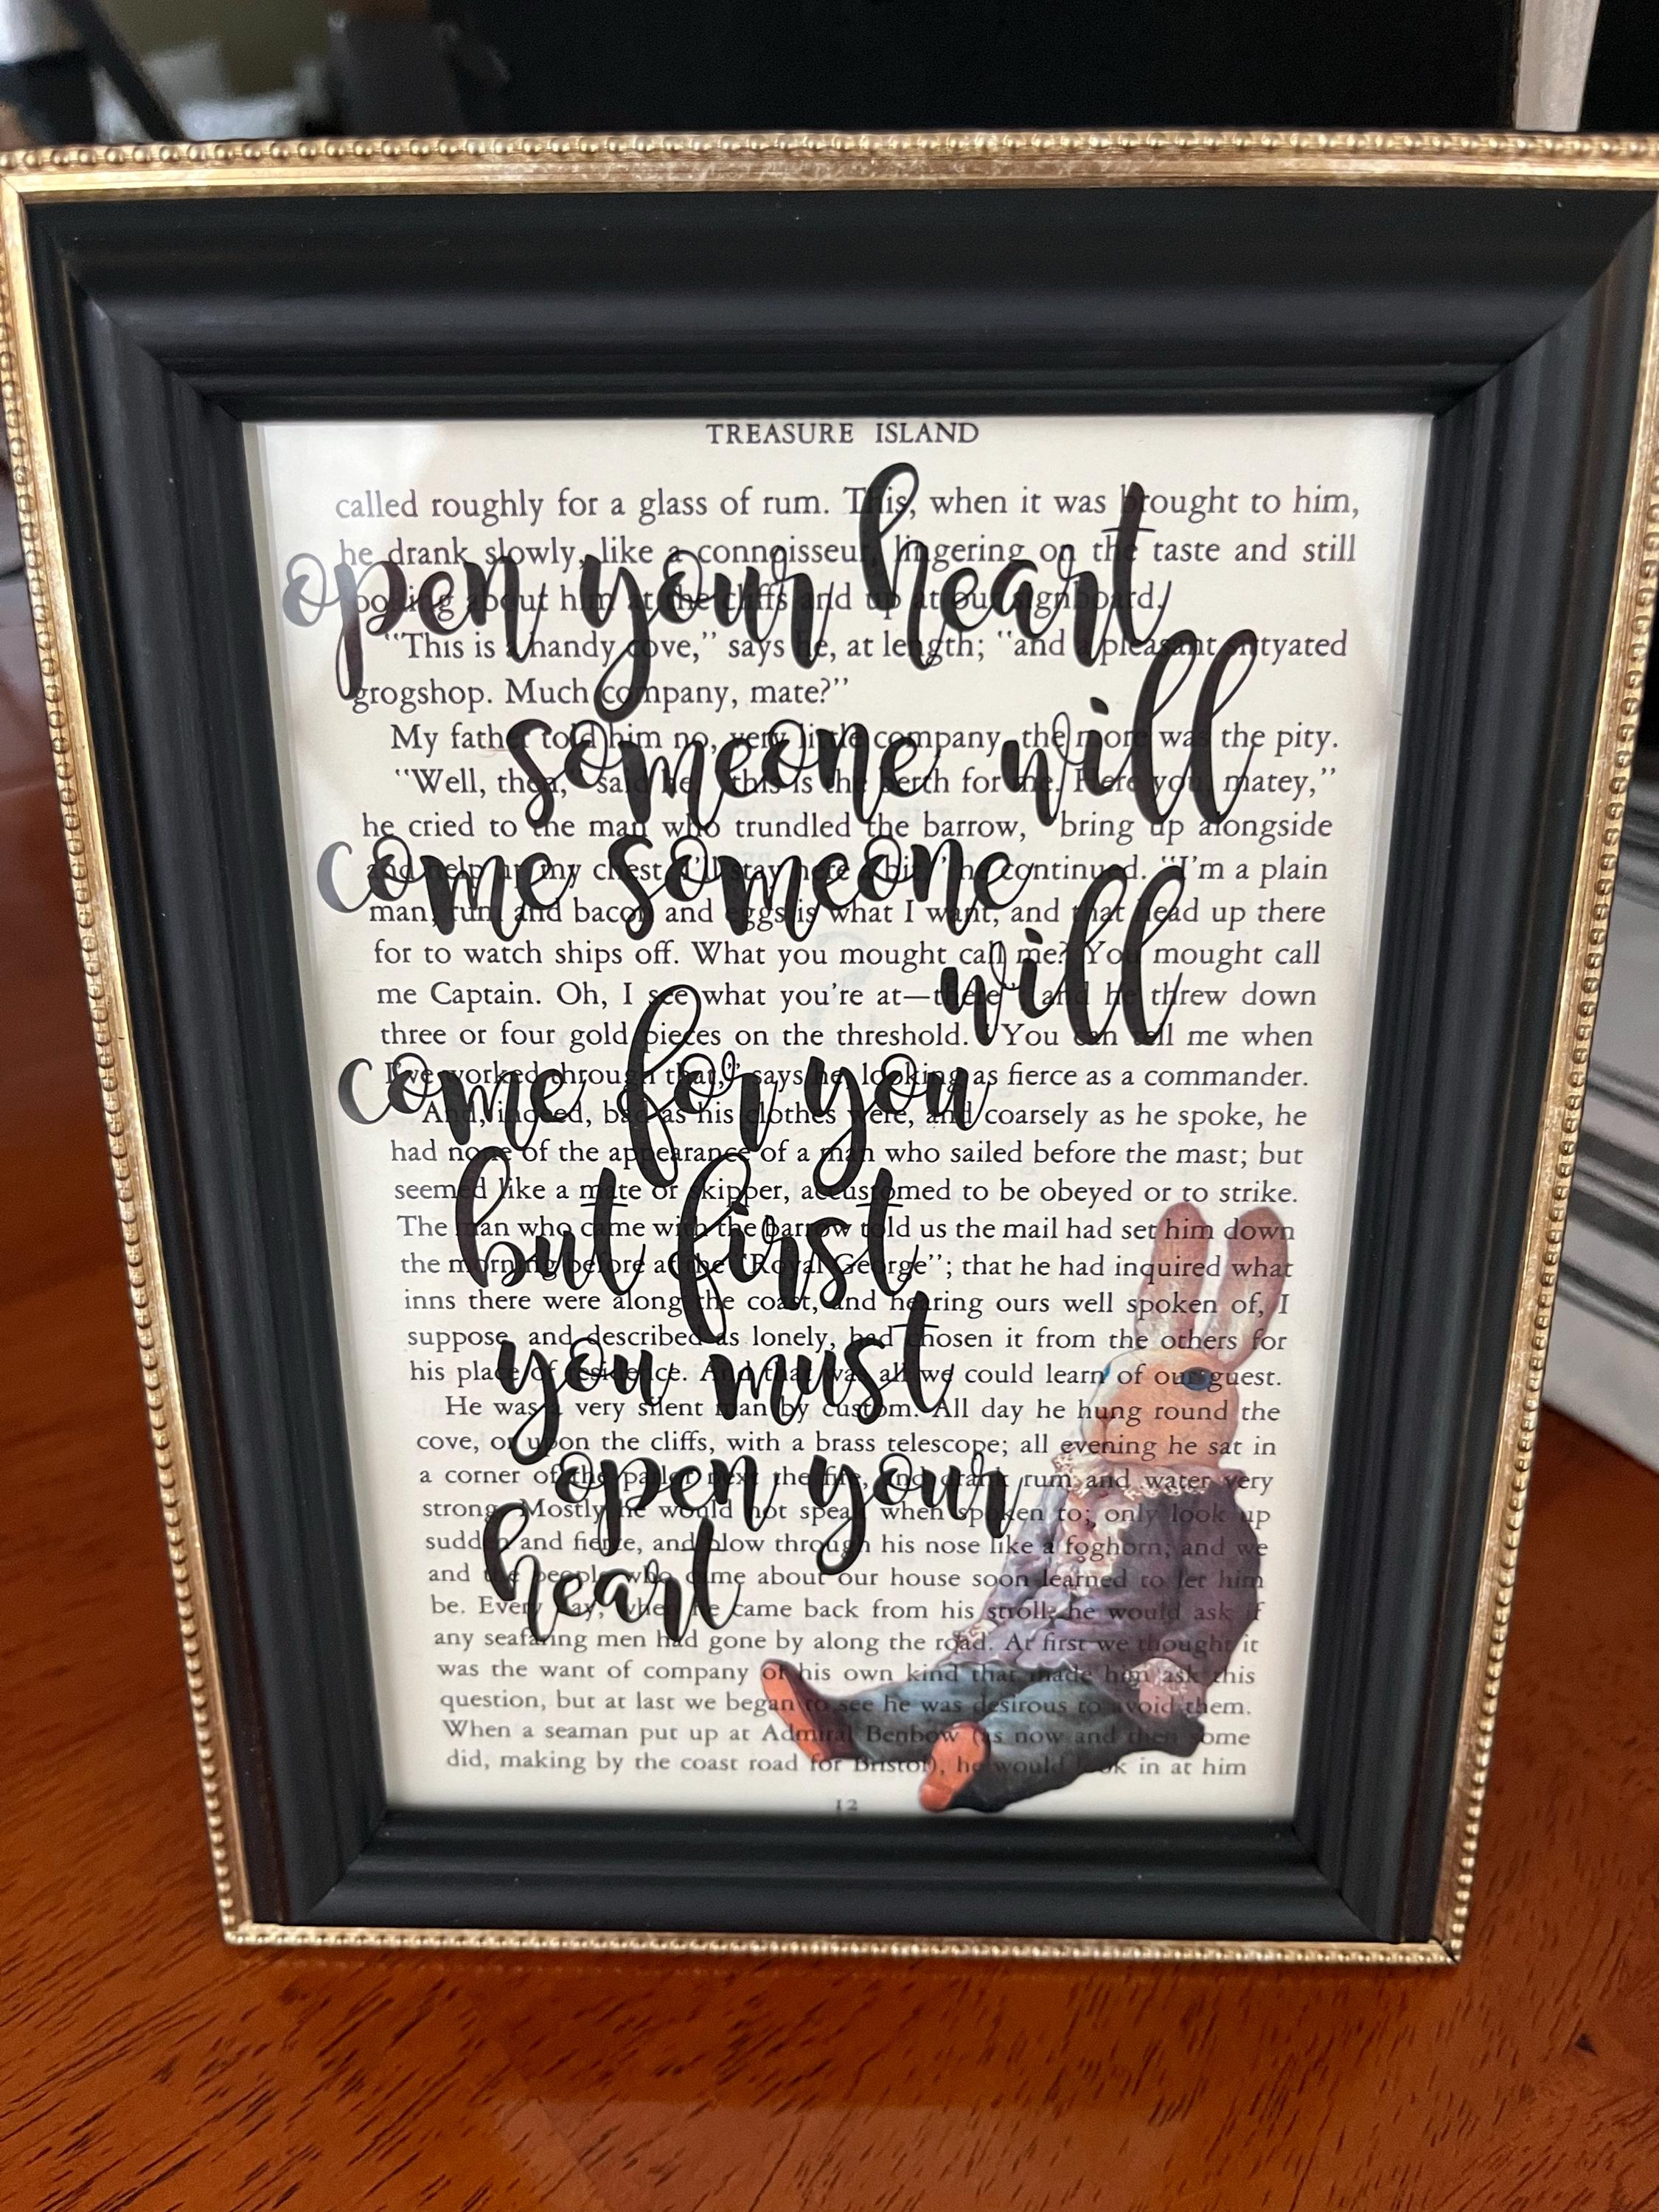 TREASURE ISLAND
called roughly for a glass of rum. This, when it was brought to him,
he drank slowly, like a connoisseur, lingering on the taste and still
looking about him at the cliffs and up at our signboard.
"This is a handy cove," says he, at length; "and a pleasant sittyated
grogshop. Much company, mate?"
My father told him no, very little company, the more was the pity.
"Well, then," said he, "this is the berth for me. Here you, matey,"
he cried to the man who trundled the barrow, "bring up alongside
and help up my chest. I'll stay here a bit," he continued. "I'm a plain
man; rum and bacon and eggs is what I want, and that head up there
for to watch ships off. What you mought call me? You mought call
me Captain. Oh, I see what you're at—there"; and he threw down
three or four gold pieces on the threshold. "You can tell me when
I've worked through that," says he, looking as fierce as a commander.
And, indeed, bad as his clothes were, and coarsely as he spoke, he
had none of the appearance of a man who sailed before the mast; but
seemed like a mate or skipper, accustomed to be obeyed or to strike.
The man who came with the barrow told us the mail had set him down
the morning before at the "Royal George"; that he had inquired what
inns there were along the coast, and hearing ours well spoken of, I
suppose, and described as lonely, had chosen it from the others for
his place of residence. And that was all we could learn of our guest.
He was a very silent man by custom. All day he hung round the
cove, or upon the cliffs, with a brass telescope; all evening he sat in
a corner of the parlor next the fire, and drank rum and water very
strong. Mostly he would not speak when spoken to; only look up
sudden and fierce, and blow through his nose like a foghorn; and we
and the people who came about our house soon learned to let him
be. Every day, when he came back from his stroll, he would ask if
any seafaring men had gone by along the road. At first we thought it
was the want of company of his own kind that made him ask this
question, but at last we began to see he was desirous to avoid them.
When a seaman put up at Admiral Benbow (as now and then some
did, making by the coast road for Bristol), he would look in at him
12
open your heart
someone will
come someone
will
come for you
but first
you must
open your
heart